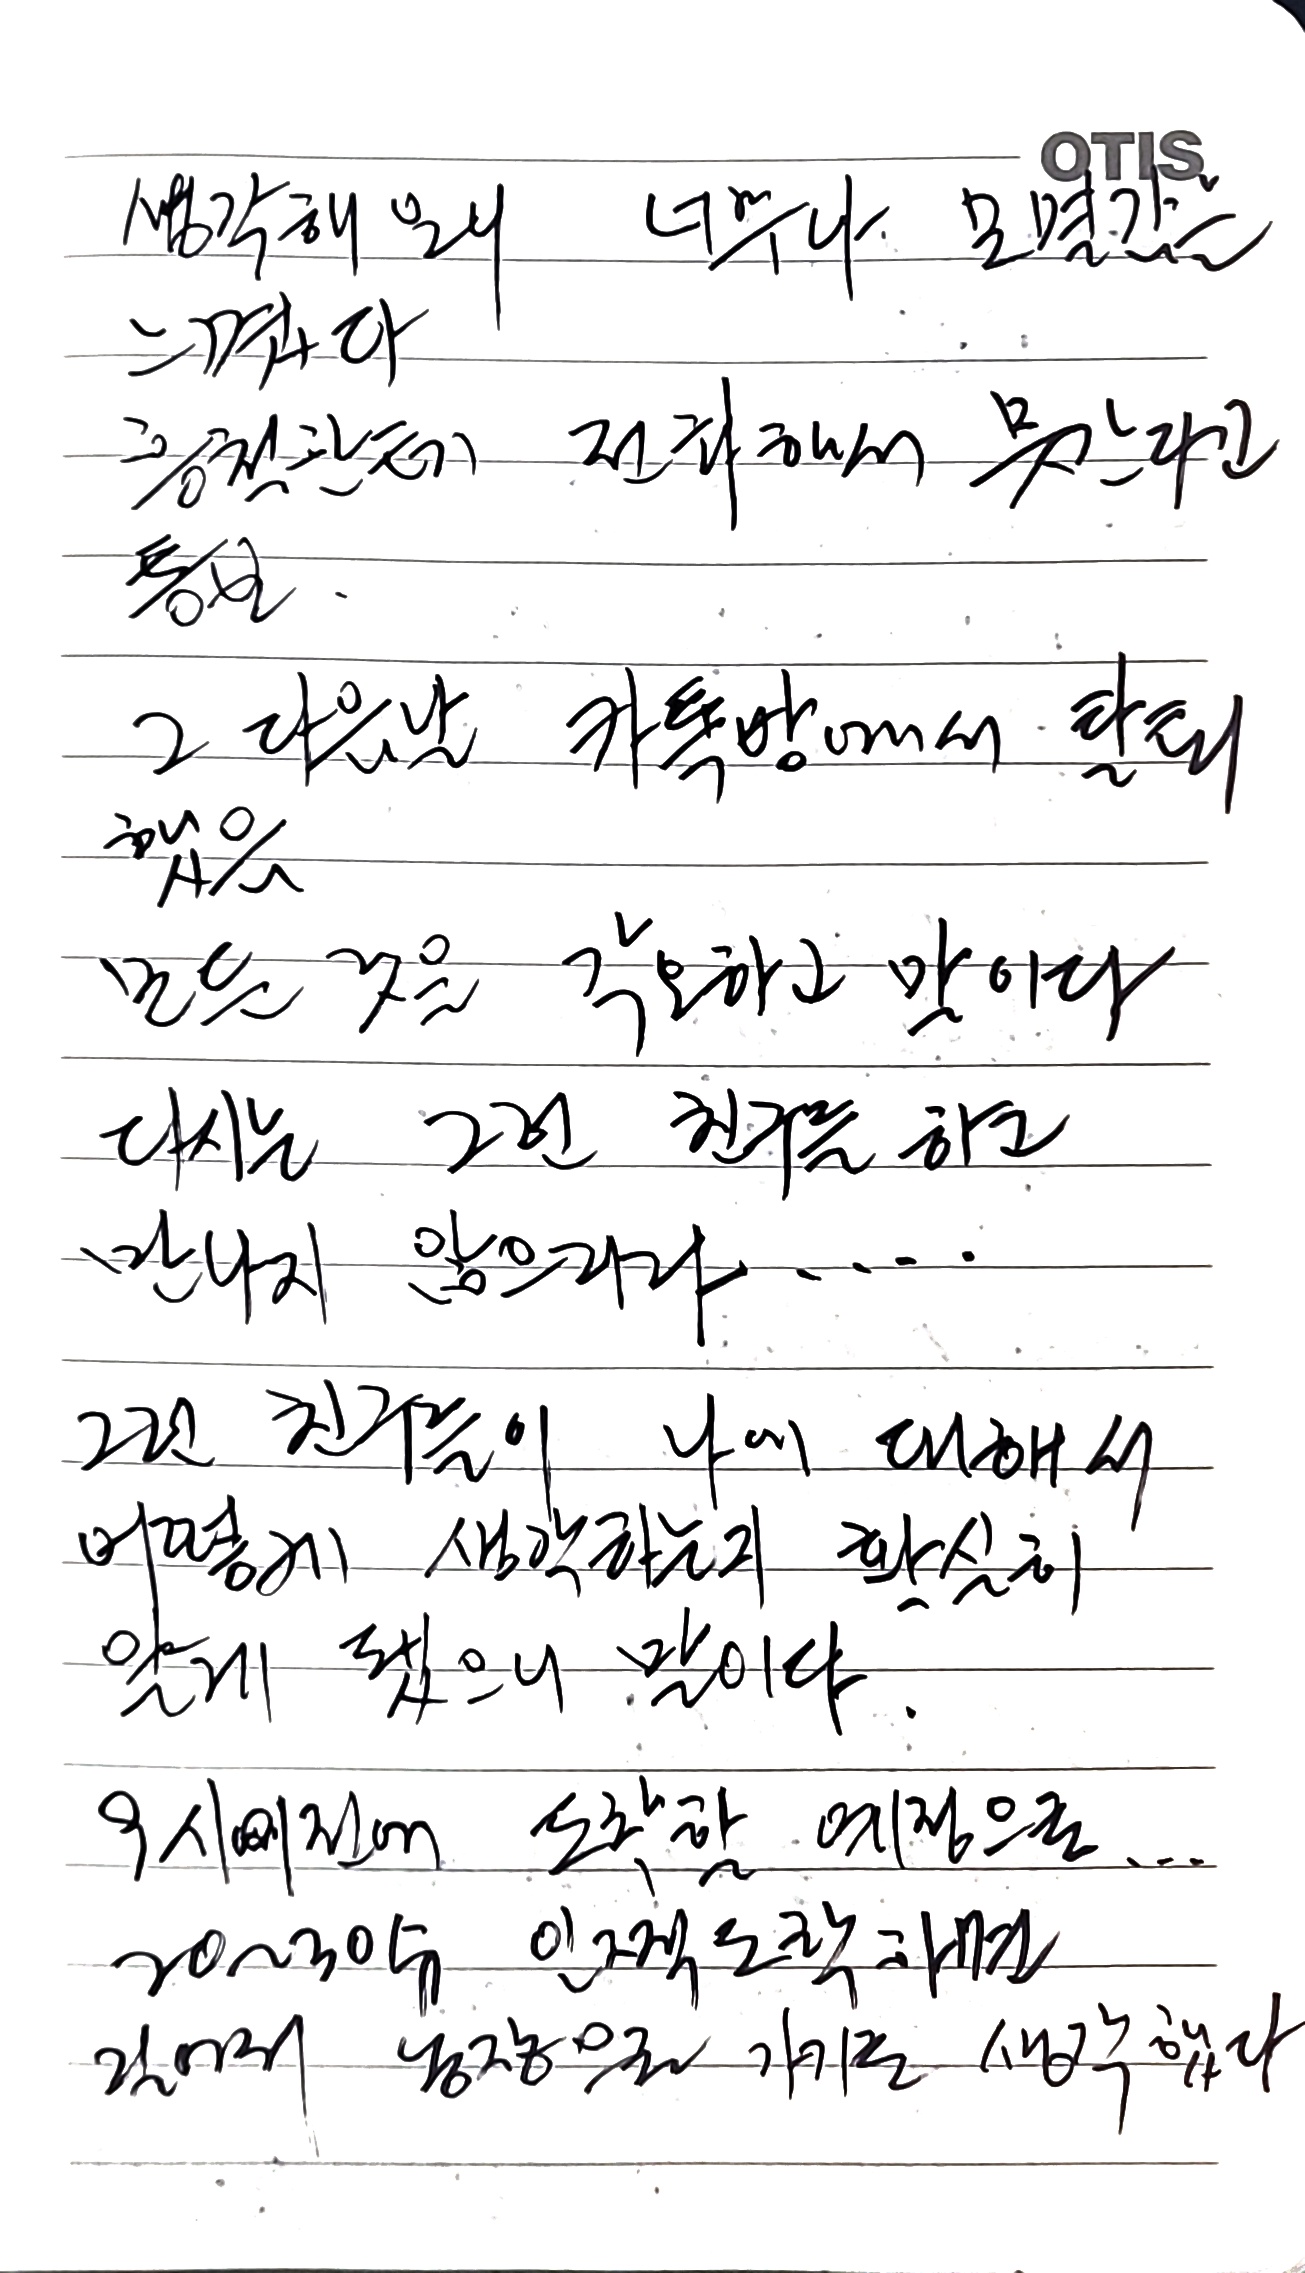 OTIS
생각해 오니 너무나 모멸감을
느꼈다
응천한테 전화해서 못간다고
통보.
그 다음날 카톡방에서 탈퇴
했음
모든 것을 각오하고 말이다
다시는 그런 친구들하고
만나지 않으리라.....
그런 친구들이 나에 대해서
어떻게 생각하는지 확실히
알게 됐으니 말이다.
9시예전에 도착할 예정으로...
20~30分 일찍도착하면
길에 농장으로 가기로 생각했다